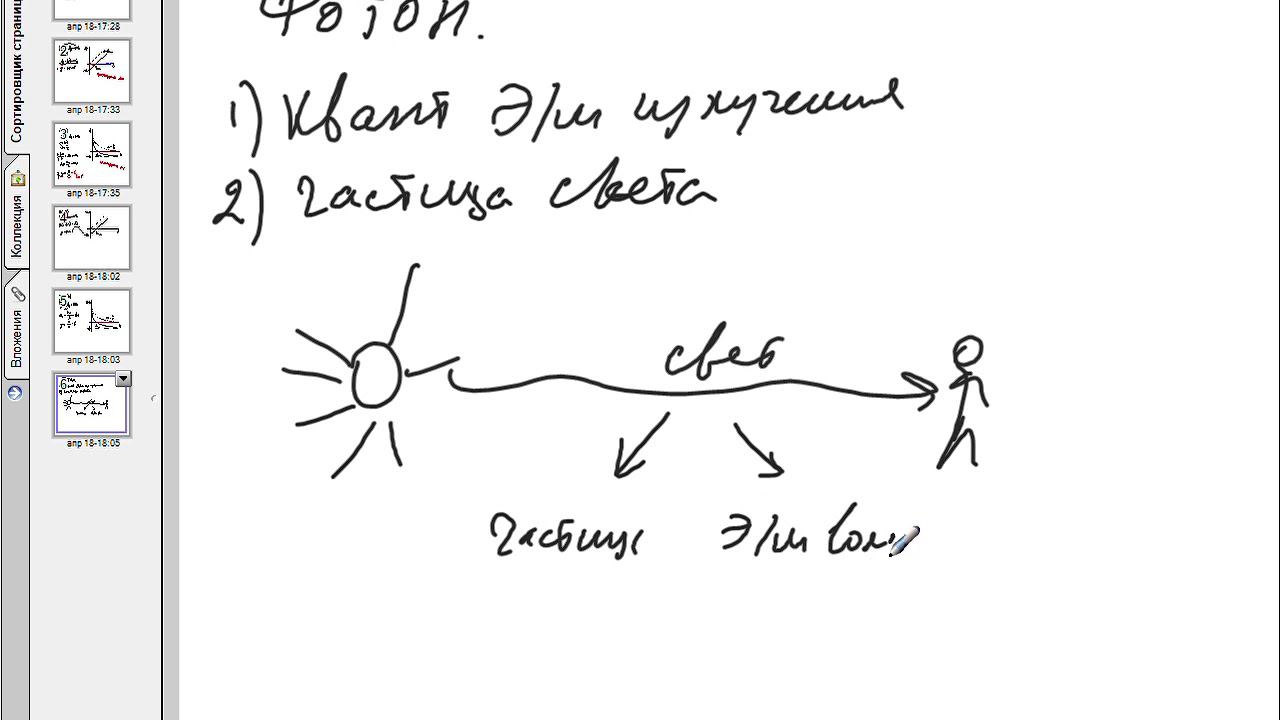 Сортировщик страниц
Коллекция
Вложения
апр 18-17:28
апр 18-17:33
апр 18-17:35
апр 18-18:02
апр 18-18:03
апр 18-18:05
Фотон.
1) Квант Э/м излучения
2) Частица света
свет
Частица Э/м вол